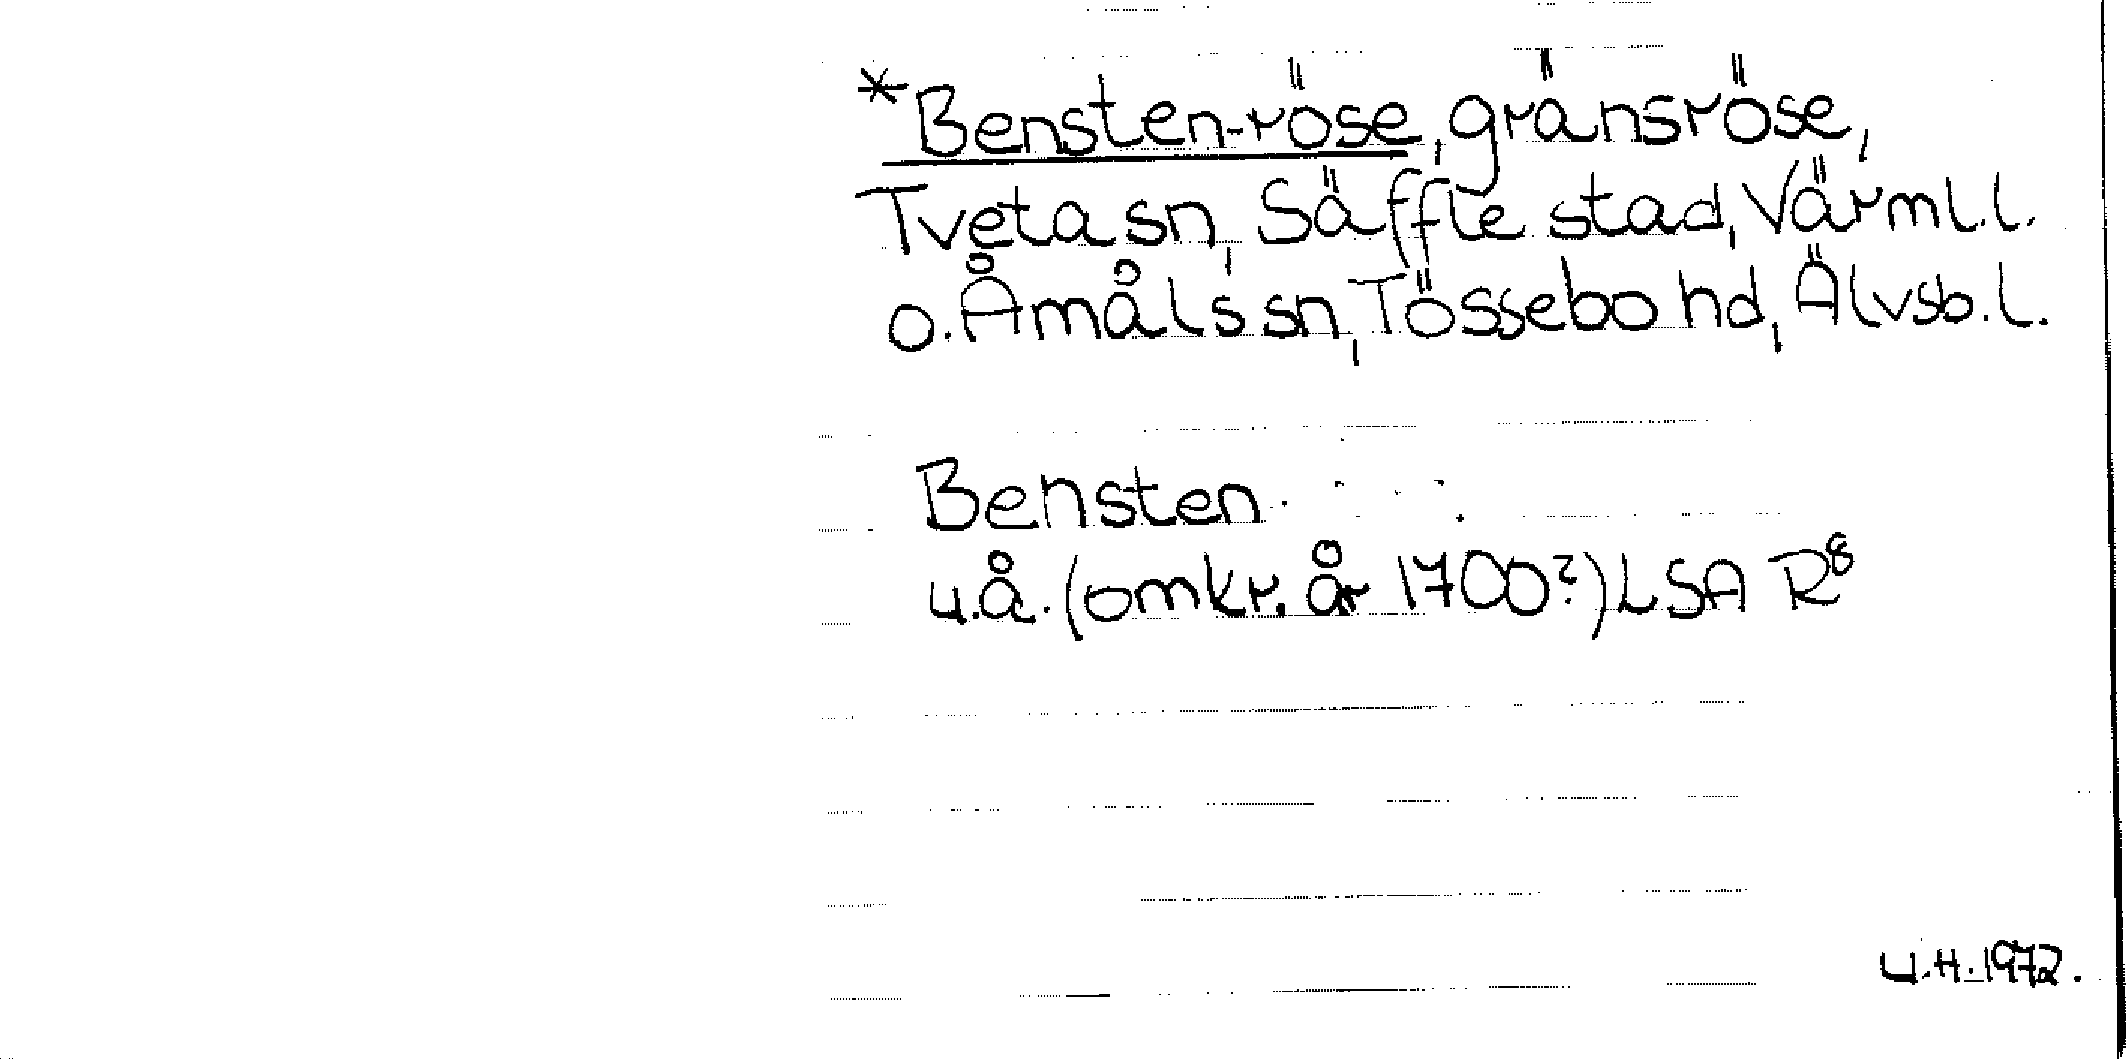 *Bensten-röse, gränsröse,
Tveta sn, Säffle stad, Värml.l.
o. Åmåls sn, Tössebo hd, Älvsb.l.
Bensten
u.å. (omkr. år 1700?) LSA R8
U.H. 1972.